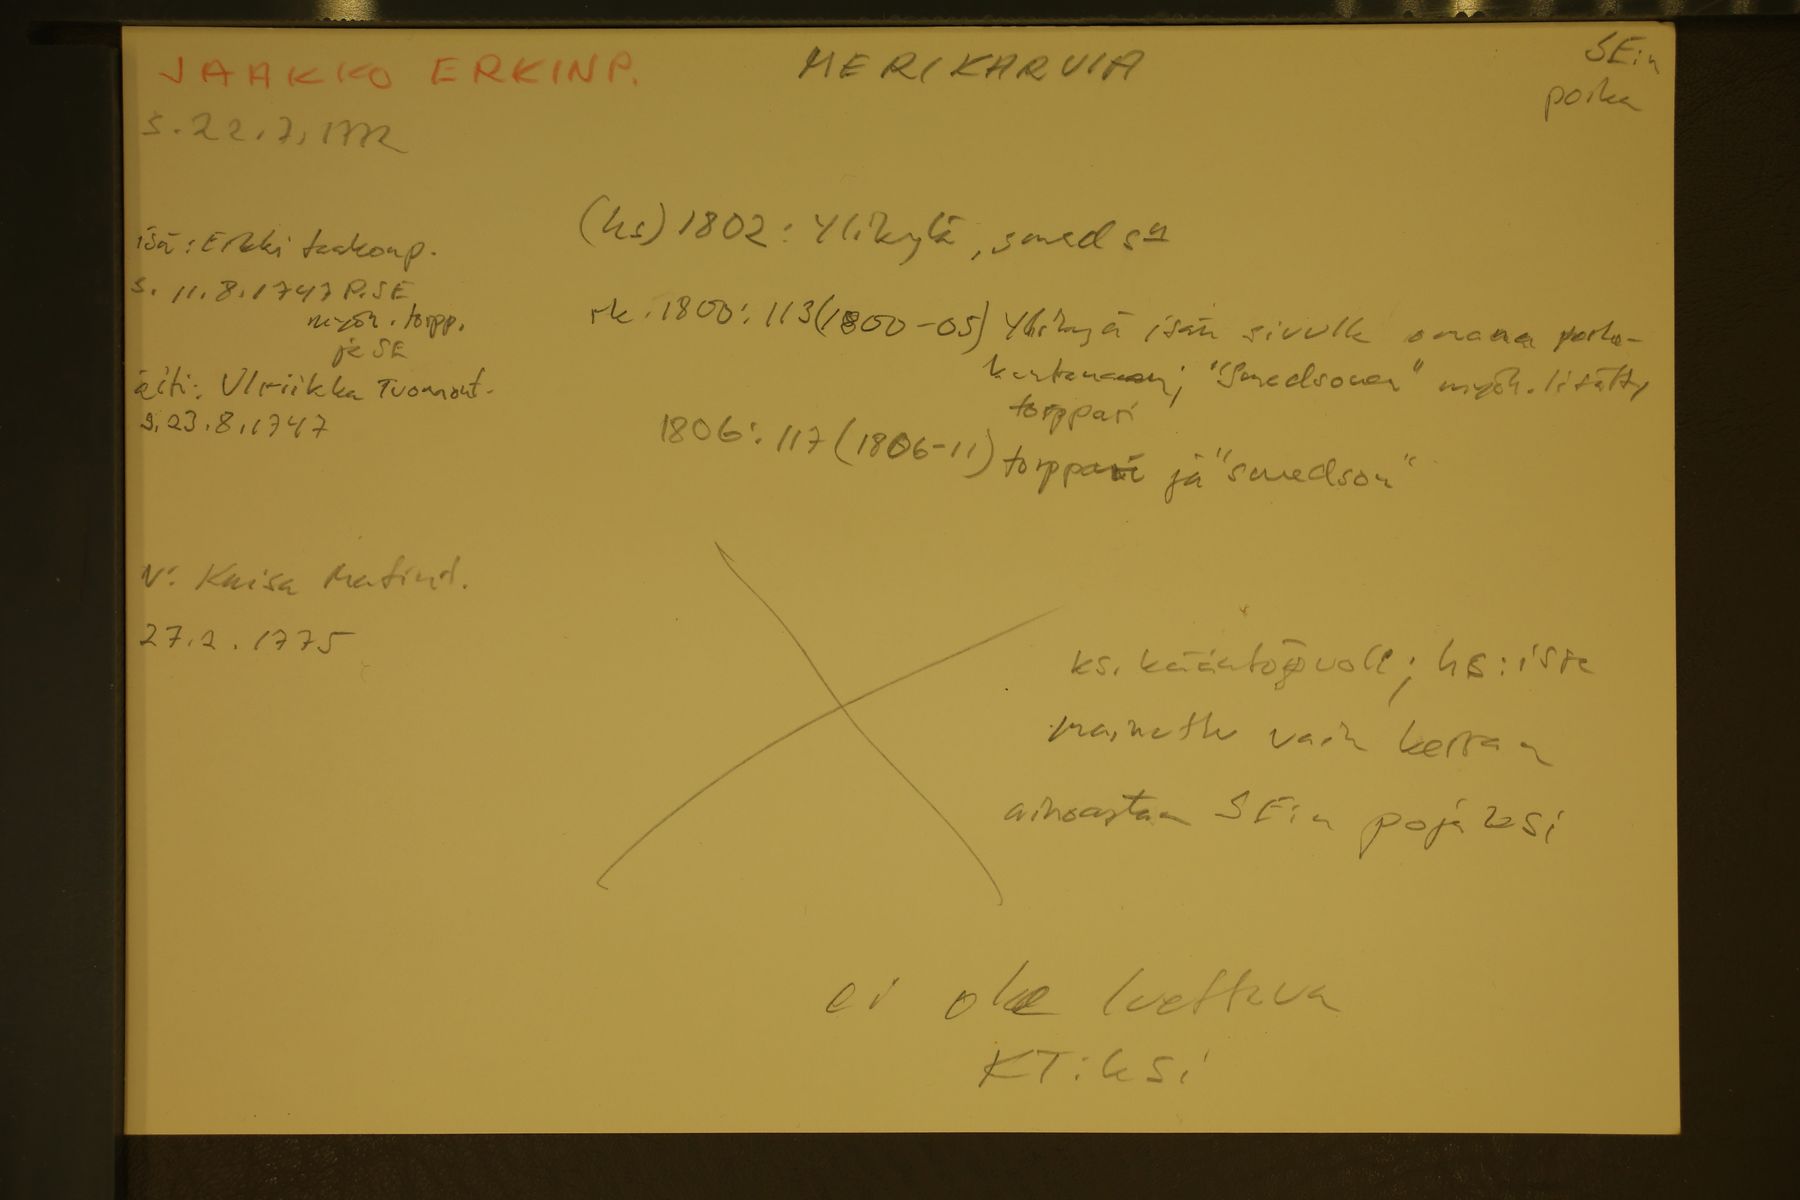 JAAKKO ERKINP.
MERIKARVIA
SE:n
poika
s. 22.7.1772
isä: Erkki Jaakonp.
s. 11.8.1747 P.SE
myöh. torpp.
ja SE
äiti: Ulriikka Tuomont.
s. 23.8.1747
v: Kaisa Matint.
27.2.1775
(hs) 1802: Ylikylä, smeds
rk. 1800: 113 (1800-05) Ylikylä isän sivulla omana
"Smedsonen" myöh. lisätty
torppari
1806: 117 (1806-11) torppari ja "smedson"
ks. kääntöpuoli; hs:issa
mainittu vain kerran
ainoastaan SE:n pojaksi
ei ole luettava
KT:ksi